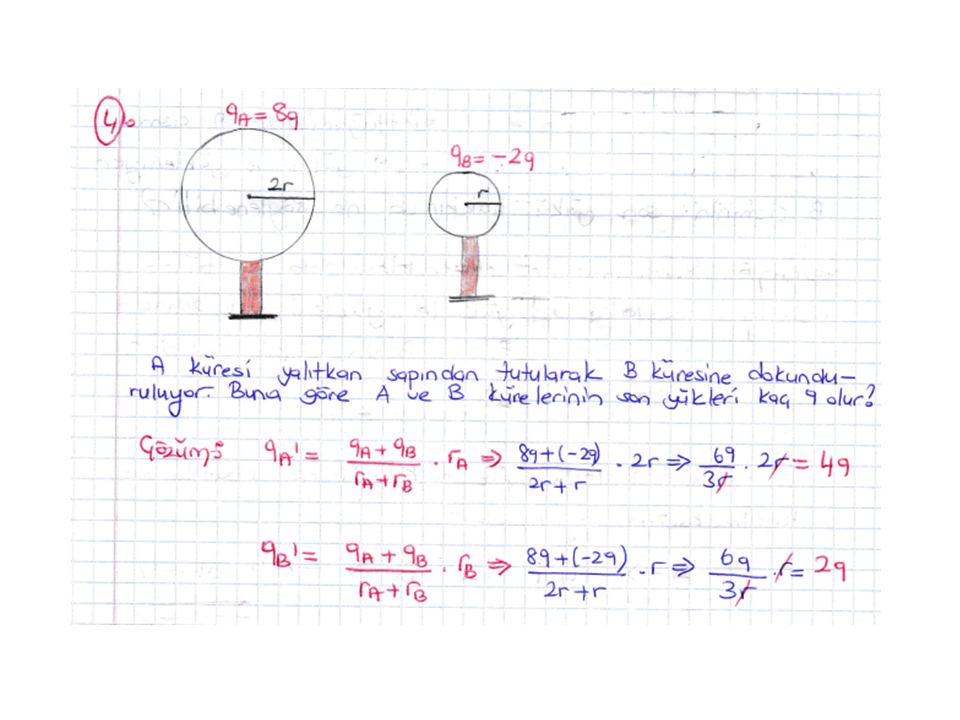 4.
qA = 8q
2r
qB = -2q
r
A küresi yalıtkan sapından tutularak B küresine dokundu-
ruluyor. Buna göre A ve B kürelerinin son yükleri kaç q olur?
Çözüm: qA' = (qA + qB)/(rA + rB) . rA ⇒ (8q+(-2q))/(2r+r) . 2r ⇒ 6q/3r . 2r = 4q
qB' = (qA + qB)/(rA + rB) . rB ⇒ (8q+(-2q))/(2r+r) . r ⇒ 6q/3r . r = 2q